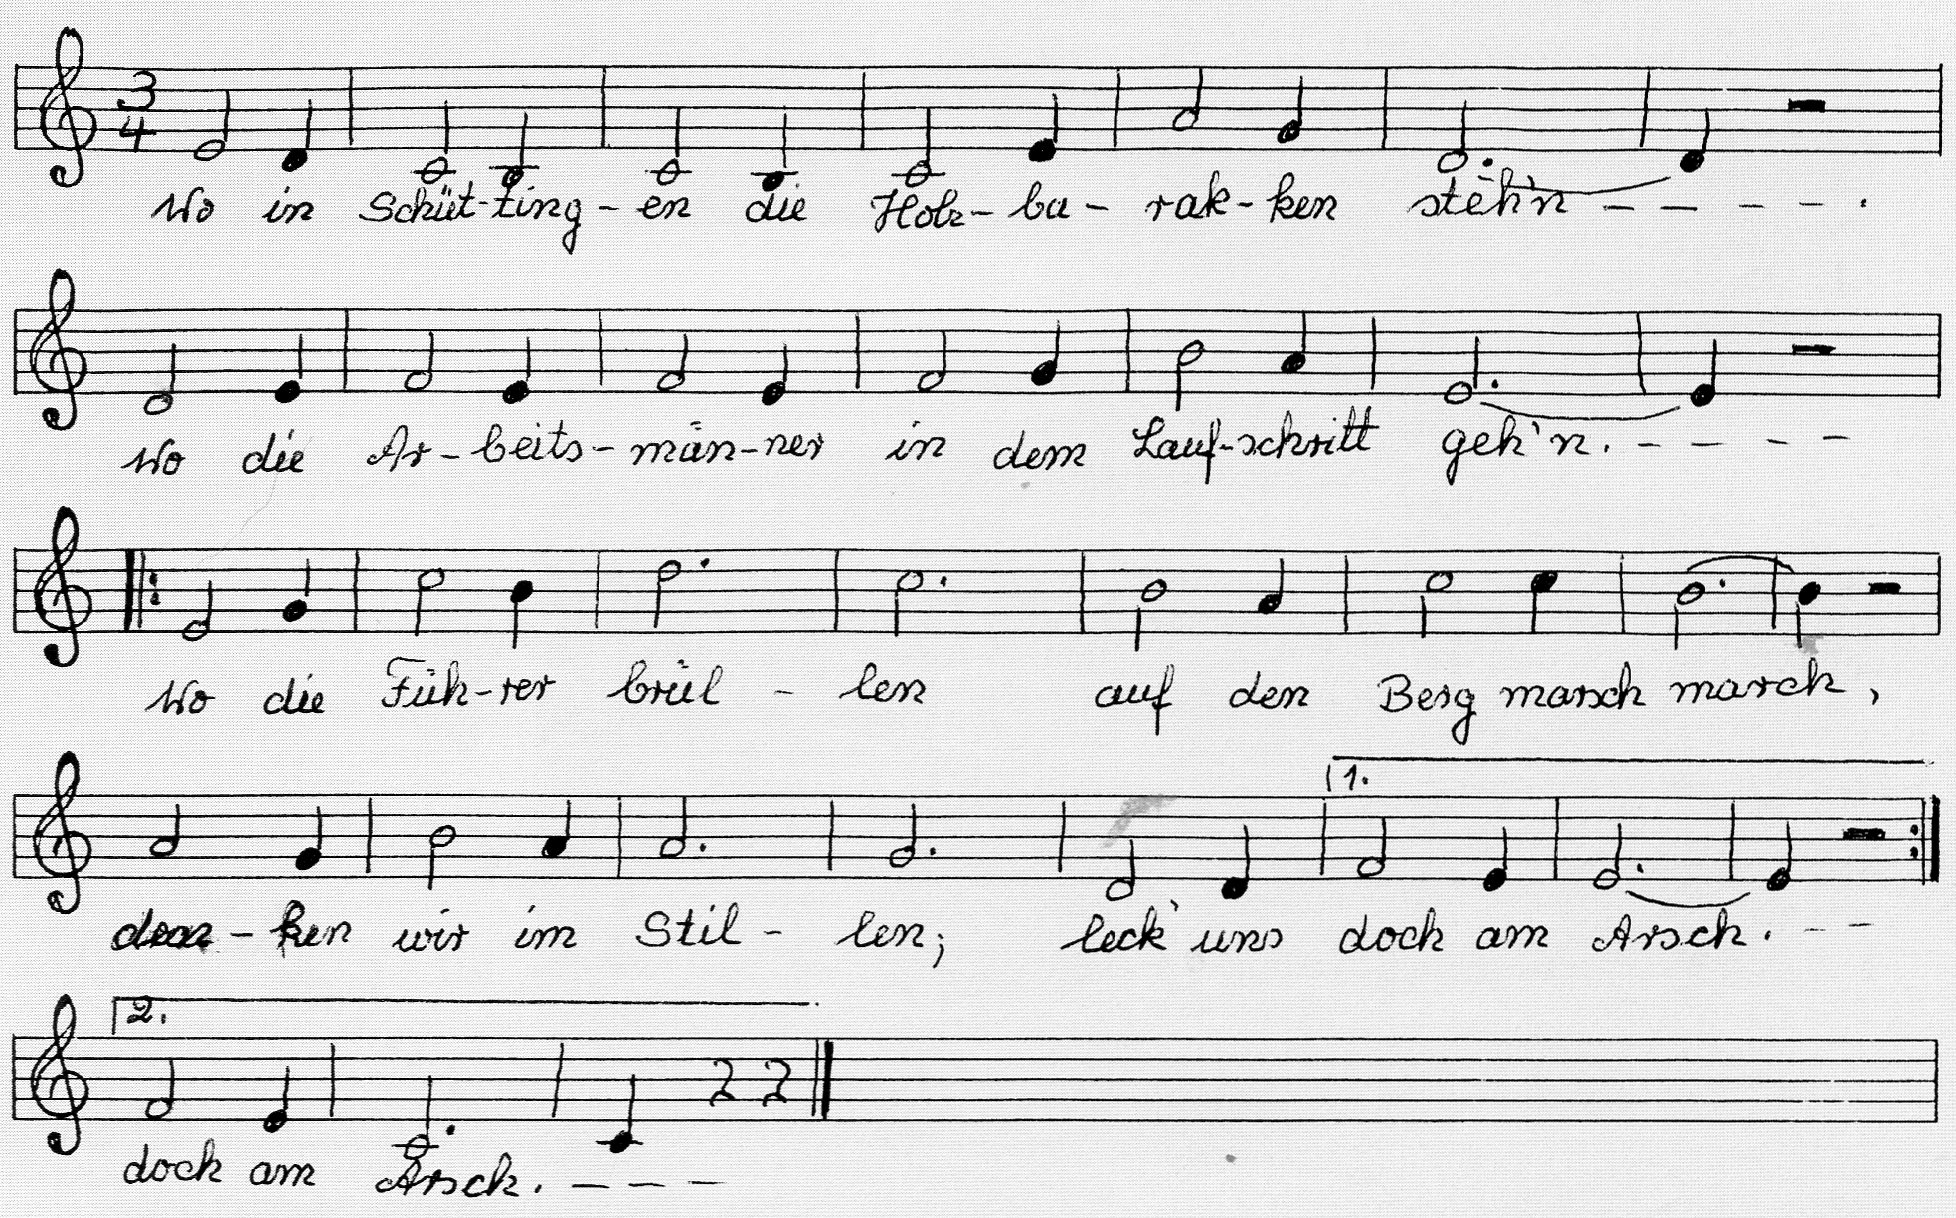 3
4
Wo in Schüt-ting-en die Holz-ba-rak-ken steh'n - - - - .
Wo die Ar-beits-män-ner in dem Lauf-schritt geh'n. - - - -
Wo die Füh-rer brül - len auf den Berg marsch marsch,
1.
den-ken wir im Stil - len; leck' uns doch am Arsch. - -
2.
doch am Arsch. - - -